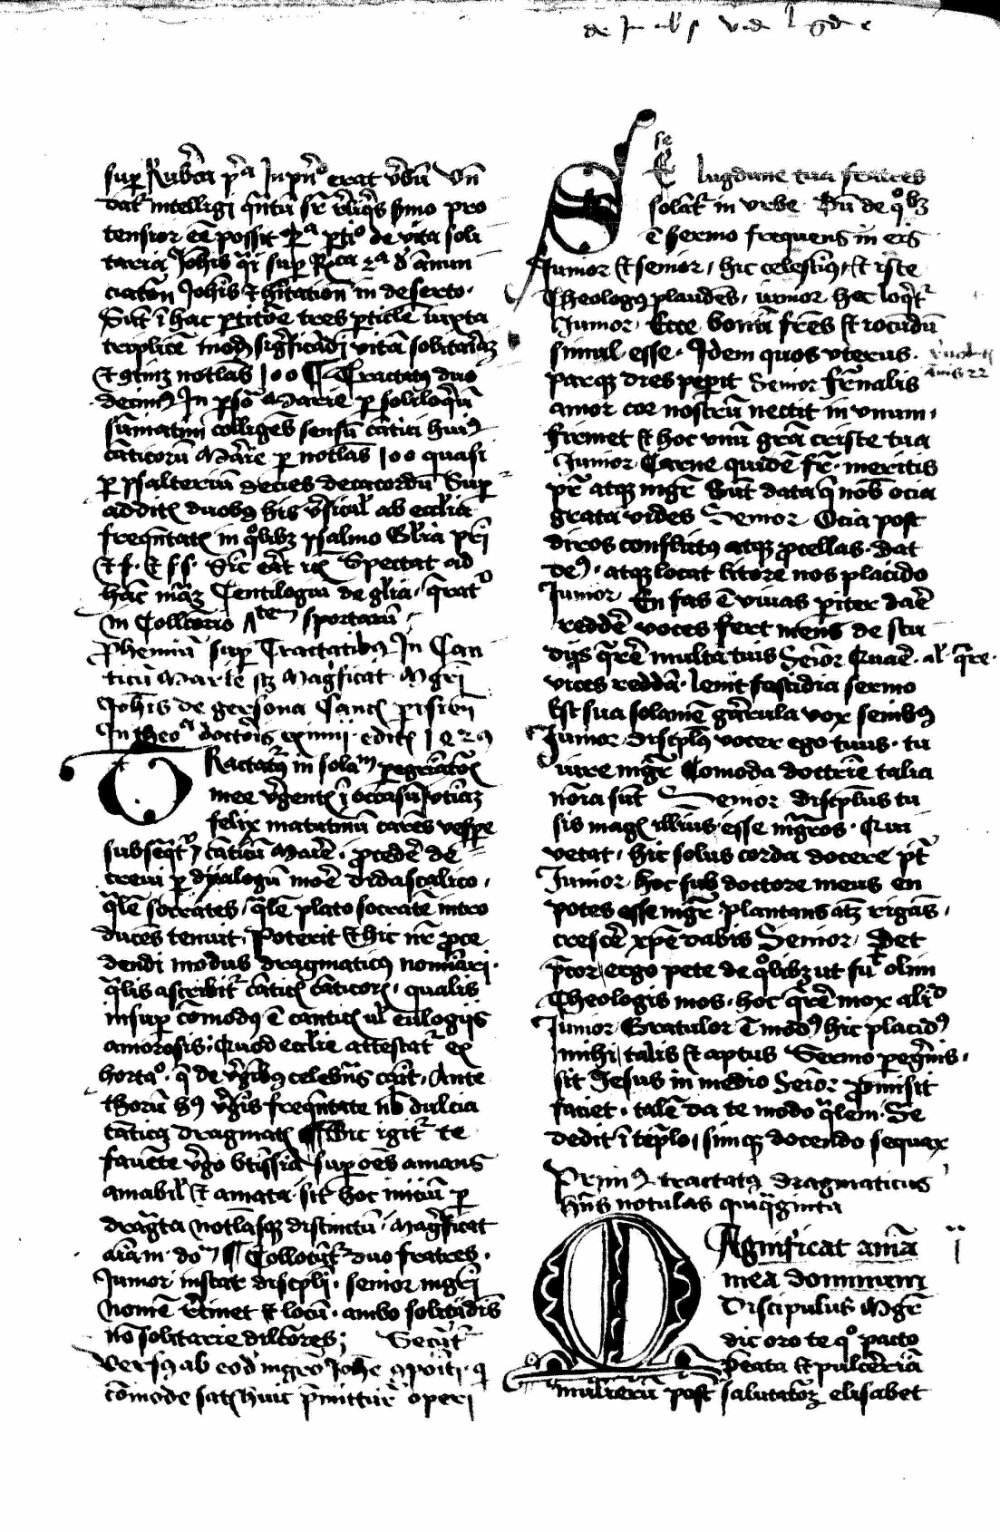 sup Rubrca pa In pn° erat vbū Vn
dat intelligi qntū sr reliqs smo pro
tensior ee possit pa pti° de vita soli
taria Johīs qi sup
ciatōn Johīs habitationē in deserto
Sūt ī hac pticōe tres pticle iuxta
triplicē modū significādi vitā solitariaz
notlas 100 Tractatus duo
decimus In psōa Marie p soliloquiū
sūmatim colligēs sensū cātici huiꝰ
cāticorū Marie p notlas 100 quasi
p psalteriū decies decacordū Sup
additis duobus his vsiculis ab ecclia
freqntatis in qlibz psalmo Gloria pri
et f. et sps. Sic erat Spectat ad
hāc māz Centilogiū de glīa
in Collctorio sportarū
Phemiū sup Tractatibus In Can
ticū Marie sz Magnificat Mgri
Johīs de gersona Cancel parisien
In theoa doctoris eximij editis
Ractatur in solam pegrinatōis
mee vgentis ī occasū vtinaz
felix matutinū cātes vespe
subseqtr cāticū Marie. pcedē de
creui p dyalogū moē didascalico.
qlē socrates, qlē plato socratē intro
ducēs tenuit. Poterit et hic nr pce
dendi modus dragmaticus nominari.
qlis ascribitr cātic cāticorum. qualis
insup cōmodus ē canticis ul eulogijs
amorosis. Quod ecclie attestatr ex
horta°. q de vgibus celebris canit. Ante
thorū hꝰ vgis freqntate nb dulcia
cātica dragmatis Sic igitr te
fauēte vgo btissia sup oēs amans
amabil et amata sit hoc initiū p
dragmata notlasqz distinctū. Magnificat
aīa m do Collocūtr duo fratres.
Junior instar discpli. senior mgri
nomē retinet et locū. ambo solitudīs
nō solitarie dilctores; Secūtr
versus ab eod mgro Johē
cōmode satis huic pmittūtr operi
lugdune tua fratres
solātr in vrbe Dū de qbz
ē sermo frequens in eis
Junior et senior, hic celestinꝰ, et iste
Theologus plaudēs, iunior hec loqtr
Junior Ecce bonū frēs et iocūdū
simul esse. Idem quos vterus.
parqz dies peperit Senior frnalis
amor cor nostrū nectit in vnum,
firmet et hoc vnū grā criste tua
Junior Carne quidē fr. meritis
pr atqz mgr Sūt data q nob ocia
grata vides Senior Ocia post
diros conflictus atqz pcellas. Dat
deꝰ. atqz locat litore nos placido
Junior En fas ē viuas piter dare
reddē voces fert mens de stu
dijs qrē multa tuis Senior Quaē. al qre.
vices reddā. lenit fastidia sermo
Est sua solamē garrula vox senibꝰ
Junior discplus vocer ego tuus. tu
iure mgr Comoda doctrīe talia
nōra sūt Senior discplus tu
sis magis illius esse mgros. Qui
vetat, hic solus corda docere pt
Junior hoc sub doctore meus en
potes esse mgr Plantans atqz rigās,
crescē xpē dabis Senior. Det
pcor ergo pete de qlibz ut fut olim
Theologis mos. hoc qrē mox aliud
Junior Gratulor ē modꝰ hic placidꝰ
mihi talis et aptus Sermo pegnis.
sit Jesus in medio Senior pmisit
faciet. talē da te modo qlem. Se
dedit ī teplo, simqz docendo sequax
Primꝰ tractatus dragmaticus
hns notulas quiqginta
Agnificat aniā
mea dominum
Discipulus Mgr
dic oro te q° pacto
beata et pulcerrīa
mulierū post salutatōz elisabet